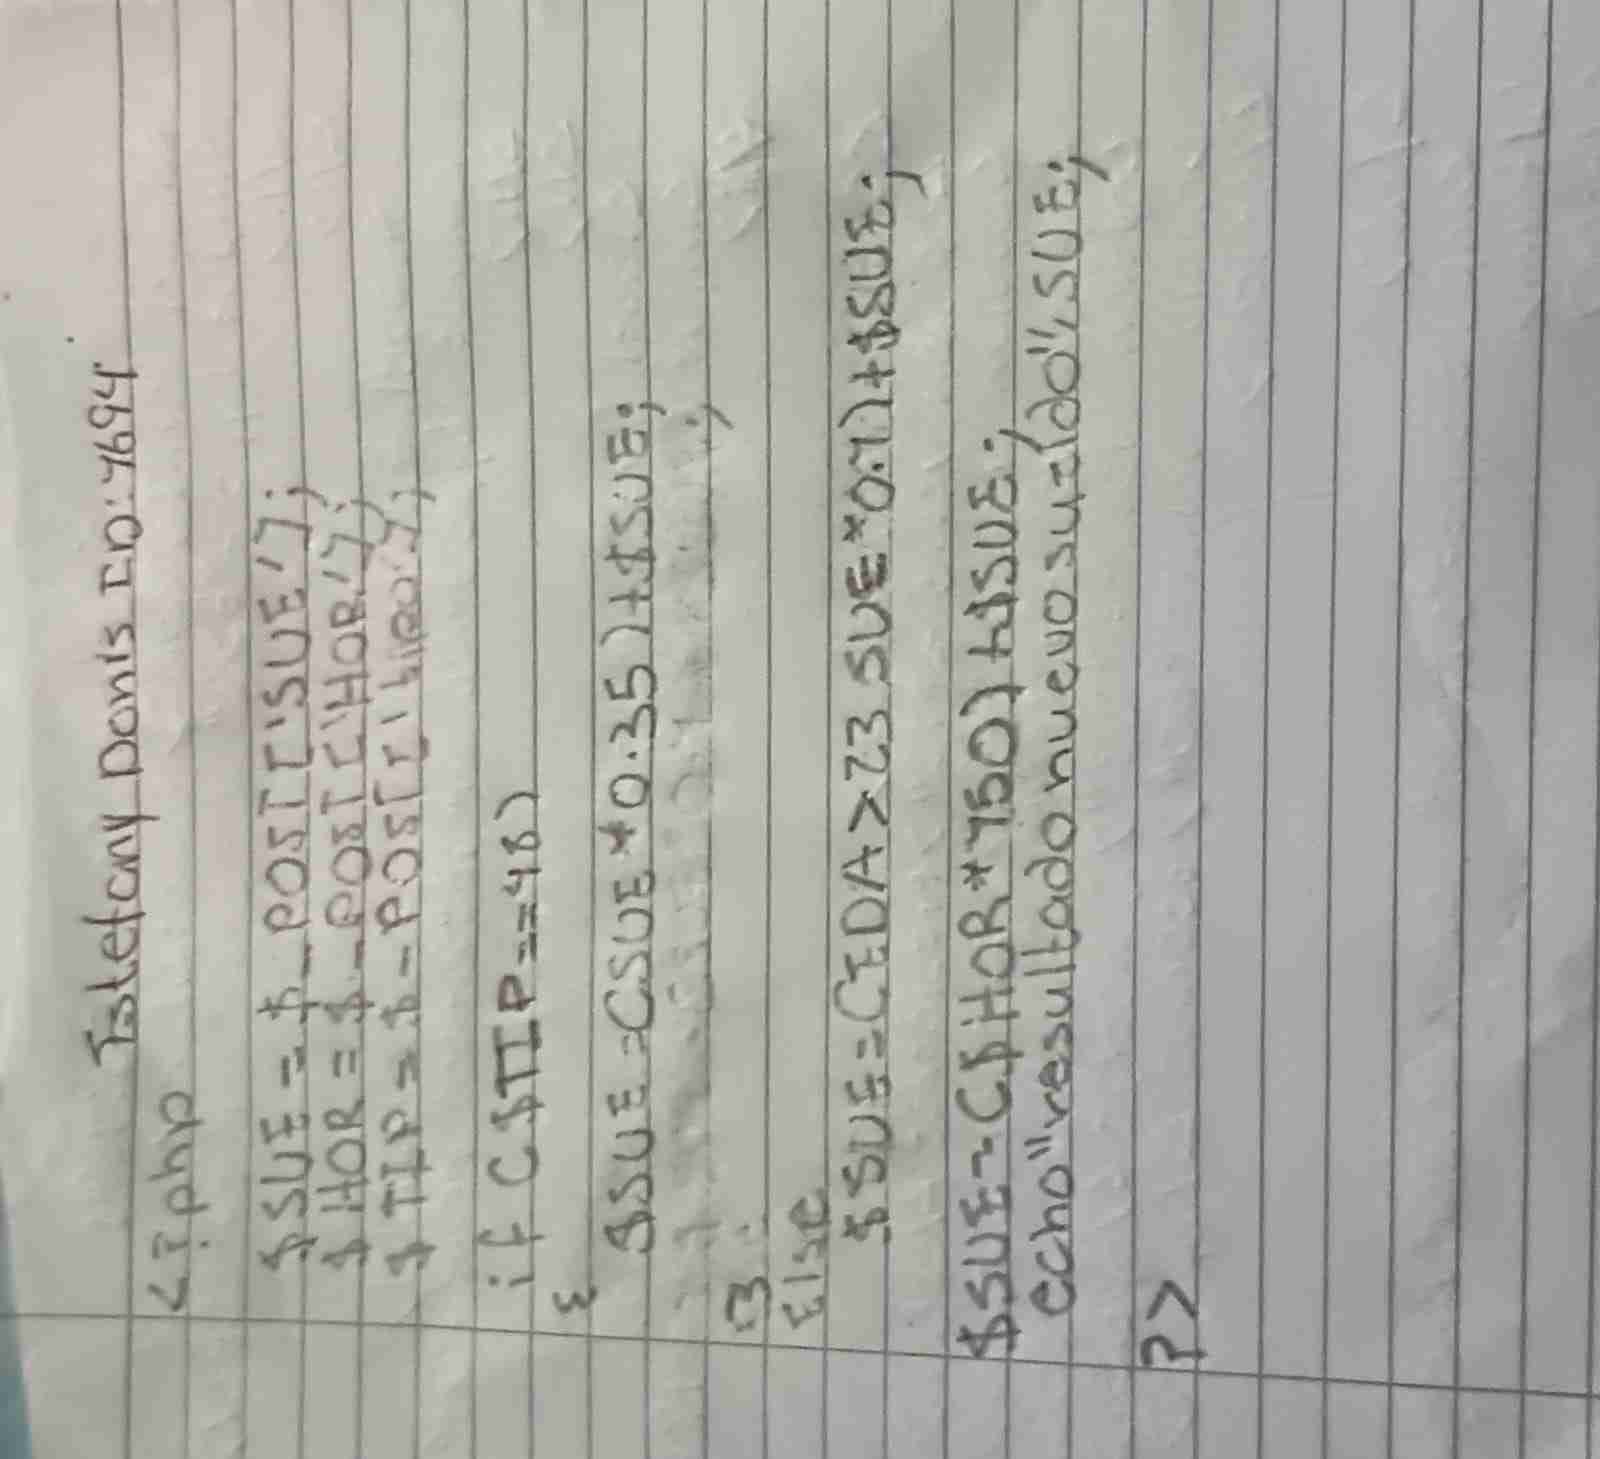 Estefany Donis ID:7694
<¿php
$SUE = $_POST['SUE'];
$HOR = $_POST['HOR'];
$TIP = $-POST['tipo'];
if ($TIP==48)
{
$SUE=(SUE*0.35)+$SUE;
}
Else
$SUE=(EDA>23 SUE*0.7)+$SUE;
$SUE=($HOR*750)+$SUE;
echo"resultado nuevo sueldo",SUE;
?>